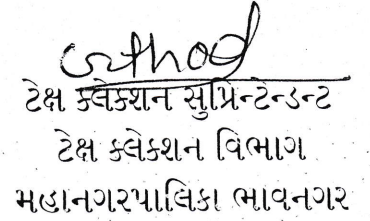 ટેક્ષ ક્લેક્શન સુપ્રિન્ટેન્ડન્ટ
ટેક્ષ ક્લેકશન વિભાગ
મહાનગરપાલિકા ભાવનગર